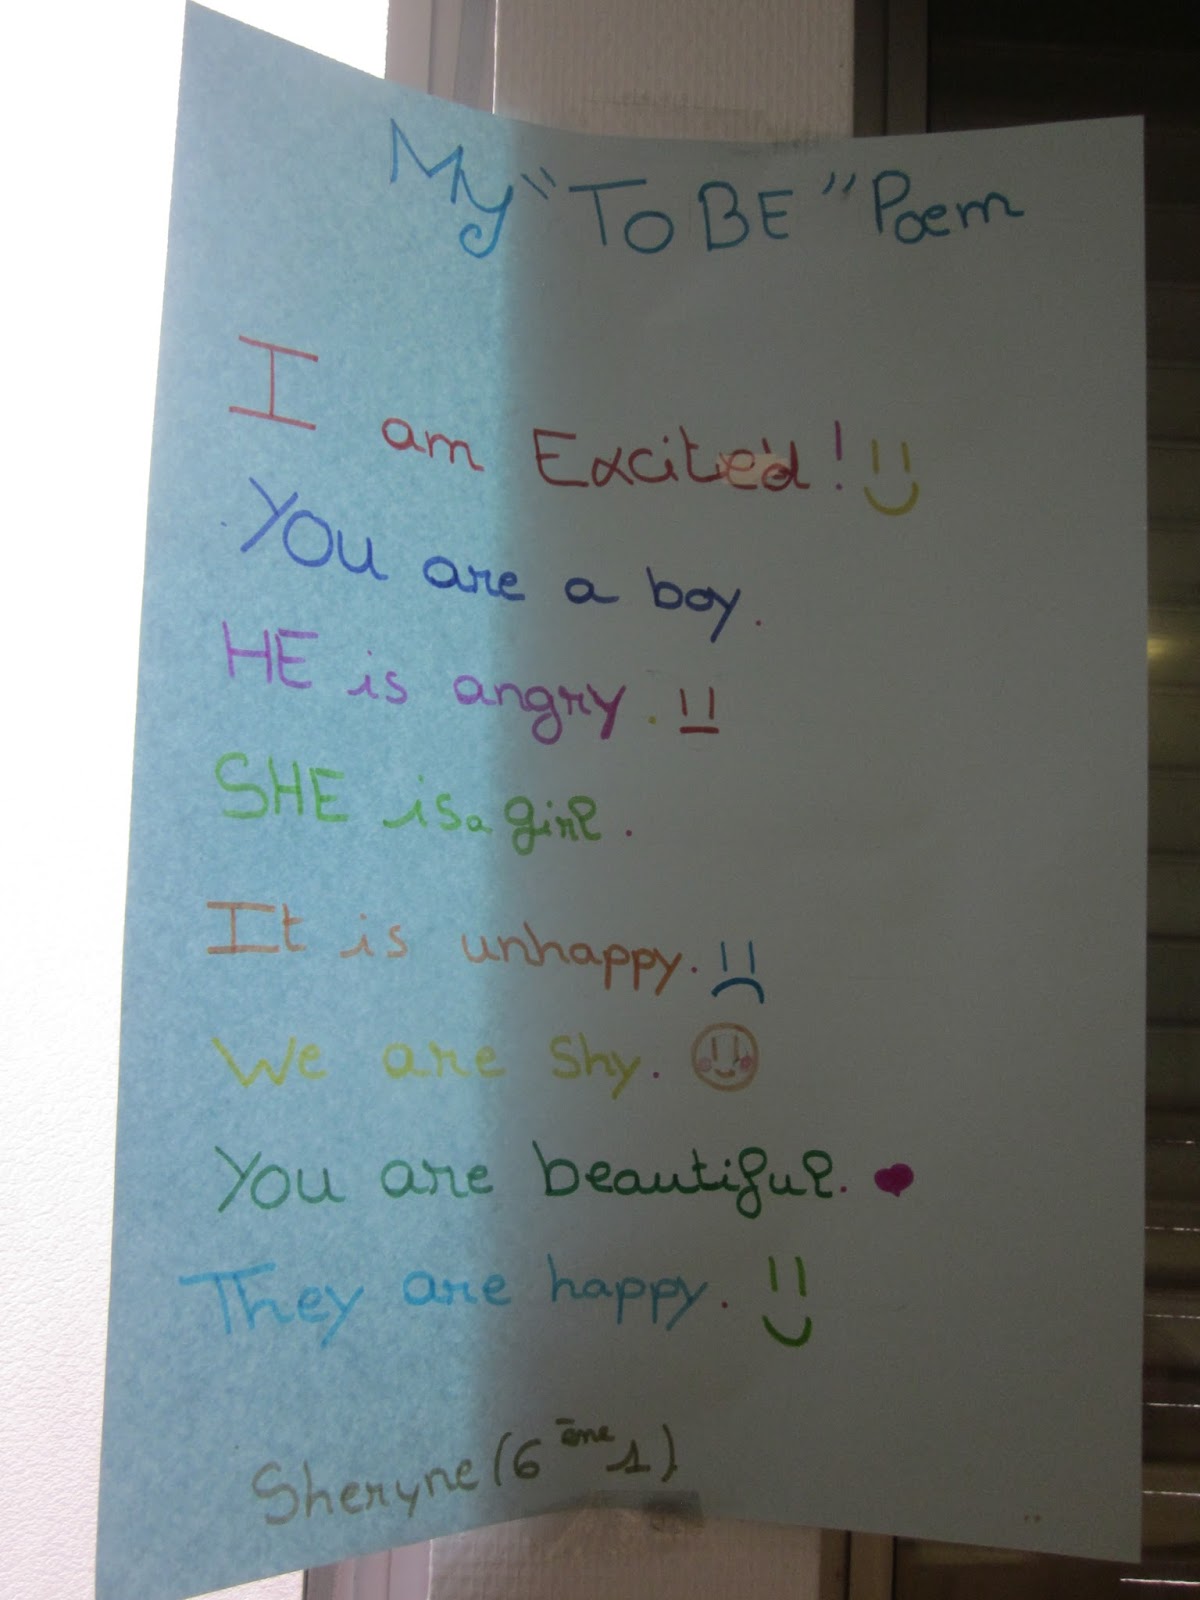 My "TO BE" Poem
I am Excited!
YOU are a boy.
HE is angry.
SHE is a girl.
It is unhappy.
We are Shy.
You are beautiful.
They are happy.
Sheryne (6ème 1)